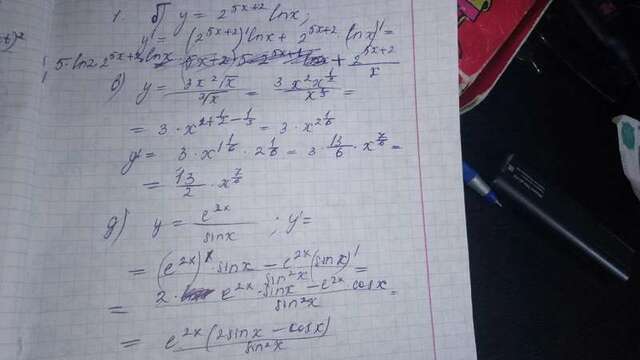 1. б) y = 2^(5x+2) lnx;
y' = (2^(5x+2))' lnx + 2^(5x+2) · (lnx)' =
5·ln2·2^(5x+2) lnx + 2^(5x+2)/x
в) y = 3x²√x/∛x = 3x²x^(1/2)/x^(1/3) =
= 3·x^(2+1/2-1/3) = 3·x^(2 1/6)
y' = 3·x^(1 1/6) · 2 1/6 = 3·13/6·x^(7/6) =
= 13/2 · x^(7/6)
д) y = e^(2x)/sinx ; y' =
= ((e^(2x))'·sinx - e^(2x)(sinx)')/sin²x =
= (2· e^(2x)·sinx - e^(2x) cosx)/sin²x =
= e^(2x)(2sinx - cosx)/sin²x